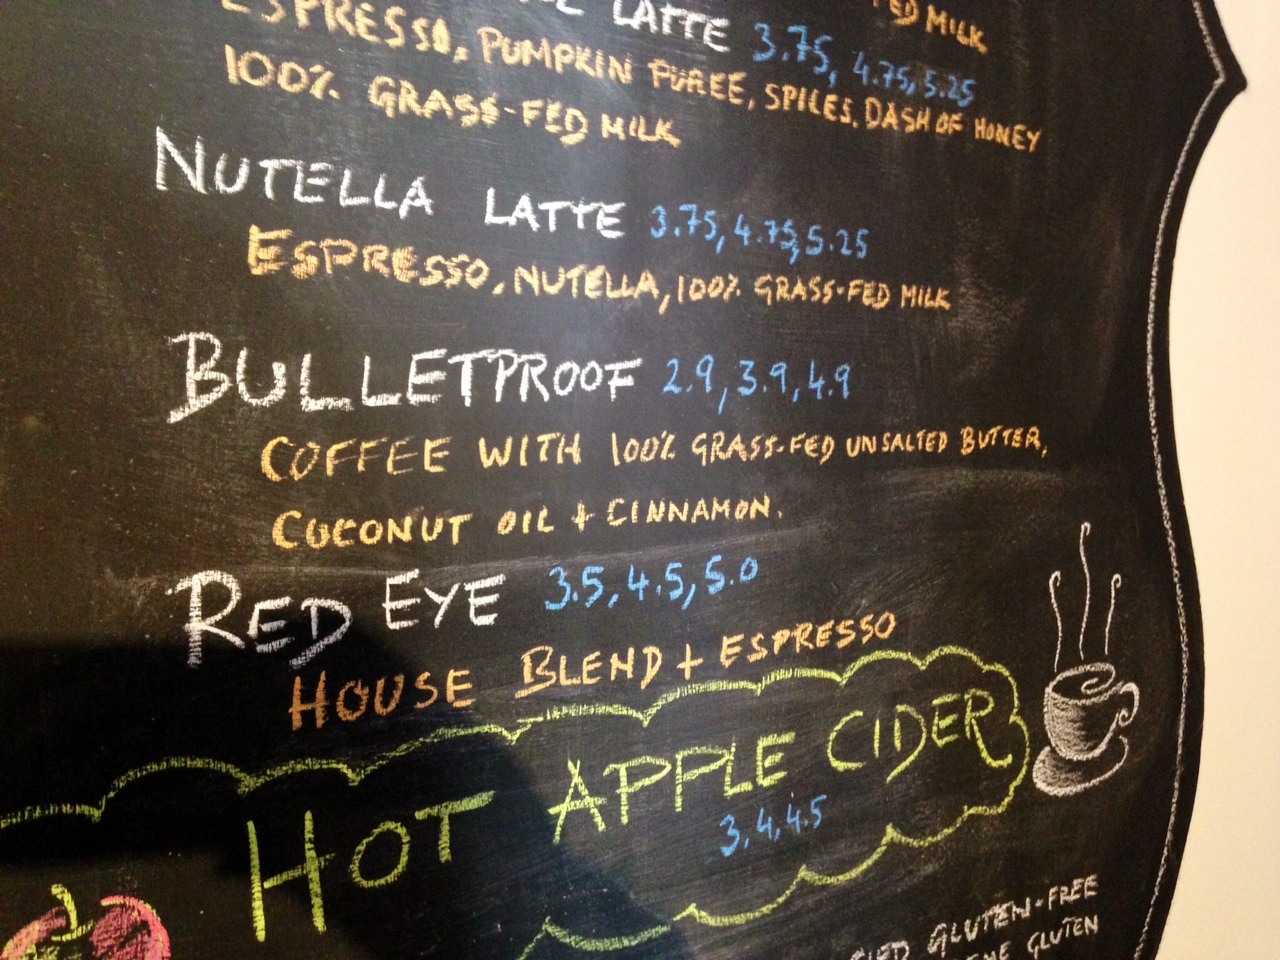 LATTE 3.75, 4.75, 5.25
ED MILK
ESPRESSO, PUMPKIN PUREE, SPICES, DASH OF HONEY
100% GRASS-FED MILK
NUTELLA LATTE 3.75, 4.75, 5.25
ESPRESSO, NUTELLA, 100% GRASS-FED MILK
BULLETPROOF 2.9, 3.9, 4.9
COFFEE WITH 100% GRASS-FED UNSALTED BUTTER,
COCONUT OIL + CINNAMON.
RED EYE 3.5, 4.5, 5.0
HOUSE BLEND + ESPRESSO
HOT APPLE CIDER
3, 4, 4.5
GLUTEN-FREE
GLUTEN